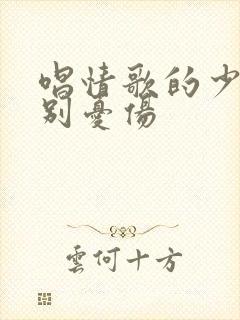 唱情歌的少
别憂傷
雲何十方